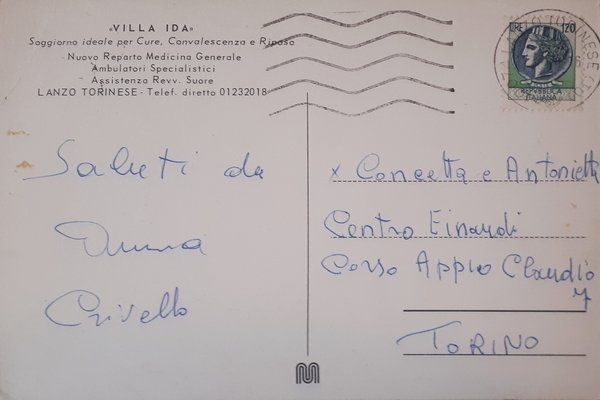 «VILLA IDA»
Soggiorno ideale per Cure, Convalescenza e Riposo
Nuovo Reparto Medicina Generale
Ambulatori Specialistici
Assistenza Revv. Suore
LANZO TORINESE - Telef. diretto 01232018
Saluti da
Crivello
x Concetta e Antonietta
Centro Einaudi
Corso Appio Claudio
TORINO
LIRE 120
REPUBBLICA
ITALIANA
TORINESE